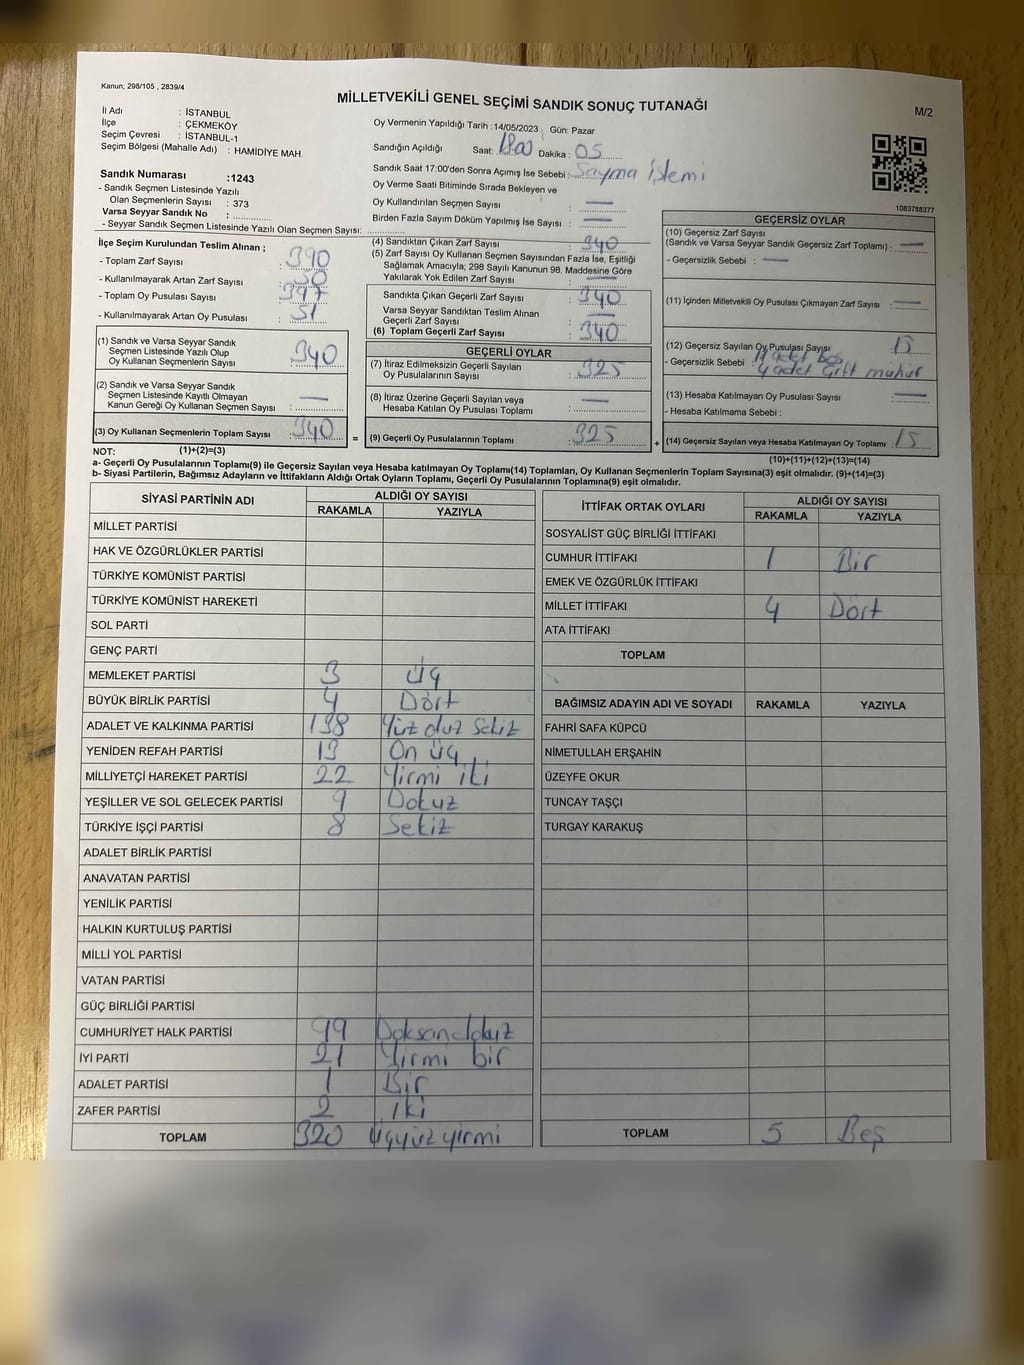 Kanun; 298/105 , 2839/4
MİLLETVEKİLİ GENEL SEÇİMİ SANDIK SONUÇ TUTANAĞI
M/2
İl Adı : İSTANBUL
İlçe : ÇEKMEKÖY
Seçim Çevresi : İSTANBUL-1
Seçim Bölgesi (Mahalle Adı) : HAMİDİYE MAH.
Sandık Numarası :1243
- Sandık Seçmen Listesinde Yazılı
Olan Seçmenlerin Sayısı : 373
Varsa Seyyar Sandık No :
- Seyyar Sandık Seçmen Listesinde Yazılı Olan Seçmen Sayısı:
Oy Vermenin Yapıldığı Tarih :14/05/2023 Gün: Pazar
Sandığın Açıldığı Saat: 18.00 Dakika : 05
Sandık Saat 17:00'den Sonra Açımış İse Sebebi: Sayma işlemi
Oy Verme Saati Bitiminde Sırada Bekleyen ve
Oy Kullandırılan Seçmen Sayısı : —
Birden Fazla Sayım Döküm Yapılmış İse Sayısı : —
1083788377
İlçe Seçim Kurulundan Teslim Alınan ;
- Toplam Zarf Sayısı : 390
- Kullanılmayarak Artan Zarf Sayısı : 50
- Toplam Oy Pusulası Sayısı : 397
- Kullanılmayarak Artan Oy Pusulası : 51
(1) Sandık ve Varsa Seyyar Sandık
Seçmen Listesinde Yazılı Olup
Oy Kullanan Seçmenlerin Sayısı : 340
(2) Sandık ve Varsa Seyyar Sandık
Seçmen Listesinde Kayıtlı Olmayan
Kanun Gereği Oy Kullanan Seçmen Sayısı : —
(3) Oy Kullanan Seçmenlerin Toplam Sayısı : 340
(1)+(2)=(3)
(4) Sandıktan Çıkan Zarf Sayısı : 340
(5) Zarf Sayısı Oy Kullanan Seçmen Sayısından Fazla İse, Eşitliği
Sağlamak Amacıyla; 298 Sayılı Kanunun 98. Maddesine Göre
Yakılarak Yok Edilen Zarf Sayısı : —
Sandıkta Çıkan Geçerli Zarf Sayısı : 340
Varsa Seyyar Sandıktan Teslim Alınan
Geçerli Zarf Sayısı : —
(6) Toplam Geçerli Zarf Sayısı : 340
GEÇERLİ OYLAR
(7) İtiraz Edilmeksizin Geçerli Sayılan
Oy Pusulalarının Sayısı : 325
(8) İtiraz Üzerine Geçerli Sayılan veya
Hesaba Katılan Oy Pusulası Toplamı : —
= (9) Geçerli Oy Pusulalarının Toplamı : 325
GEÇERSİZ OYLAR
(10) Geçersiz Zarf Sayısı
(Sandık ve Varsa Seyyar Sandık Geçersiz Zarf Toplamı) : —
- Geçersizlik Sebebi : —
(11) İçinden Milletvekili Oy Pusulası Çıkmayan Zarf Sayısı : —
(12) Geçersiz Sayılan Oy Pusulası Sayısı : 15
- Geçersizlik Sebebi : 11 adet boş
4 adet çift mühür
(13) Hesaba Katılmayan Oy Pusulası Sayısı : —
- Hesaba Katılmama Sebebi :
+ (14) Geçersiz Sayılan veya Hesaba Katılmayan Oy Toplamı : 15
(10)+(11)+(12)+(13)=(14)
NOT:
a- Geçerli Oy Pusulalarının Toplamı(9) ile Geçersiz Sayılan veya Hesaba katılmayan Oy Toplamı(14) Toplamları, Oy Kullanan Seçmenlerin Toplam Sayısına(3) eşit olmalıdır. (9)+(14)=(3)
b- Siyasi Partilerin, Bağımsız Adayların ve İttifakların Aldığı Ortak Oyların Toplamı, Geçerli Oy Pusulalarının Toplamına(9) eşit olmalıdır.
SİYASİ PARTİNİN ADI ALDIĞI OY SAYISI
RAKAMLA YAZIYLA
MİLLET PARTİSİ
HAK VE ÖZGÜRLÜKLER PARTİSİ
TÜRKİYE KOMÜNİST PARTİSİ
TÜRKİYE KOMÜNİST HAREKETİ
SOL PARTİ
GENÇ PARTİ
MEMLEKET PARTİSİ 3 Üç
BÜYÜK BİRLİK PARTİSİ 4 Dört
ADALET VE KALKINMA PARTİSİ 138 Yüz otuz sekiz
YENİDEN REFAH PARTİSİ 13 On üç
MİLLİYETÇİ HAREKET PARTİSİ 22 Yirmi iki
YEŞİLLER VE SOL GELECEK PARTİSİ 9 Dokuz
TÜRKİYE İŞÇİ PARTİSİ 8 Sekiz
ADALET BİRLİK PARTİSİ
ANAVATAN PARTİSİ
YENİLİK PARTİSİ
HALKIN KURTULUŞ PARTİSİ
MİLLİ YOL PARTİSİ
VATAN PARTİSİ
GÜÇ BİRLİĞİ PARTİSİ
CUMHURİYET HALK PARTİSİ 99 Doksandokuz
İYİ PARTİ 21 Yirmi bir
ADALET PARTİSİ 1 Bir
ZAFER PARTİSİ 2 İki
TOPLAM 320 Üçyüzyirmi
İTTİFAK ORTAK OYLARI ALDIĞI OY SAYISI
RAKAMLA YAZIYLA
SOSYALİST GÜÇ BİRLİĞİ İTTİFAKI
CUMHUR İTTİFAKI 1 Bir
EMEK VE ÖZGÜRLÜK İTTİFAKI
MİLLET İTTİFAKI 4 Dört
ATA İTTİFAKI
TOPLAM
BAĞIMSIZ ADAYIN ADI VE SOYADI RAKAMLA YAZIYLA
FAHRİ SAFA KÜPCÜ
NİMETULLAH ERŞAHİN
ÜZEYFE OKUR
TUNCAY TAŞÇI
TURGAY KARAKUŞ
TOPLAM 5 Beş